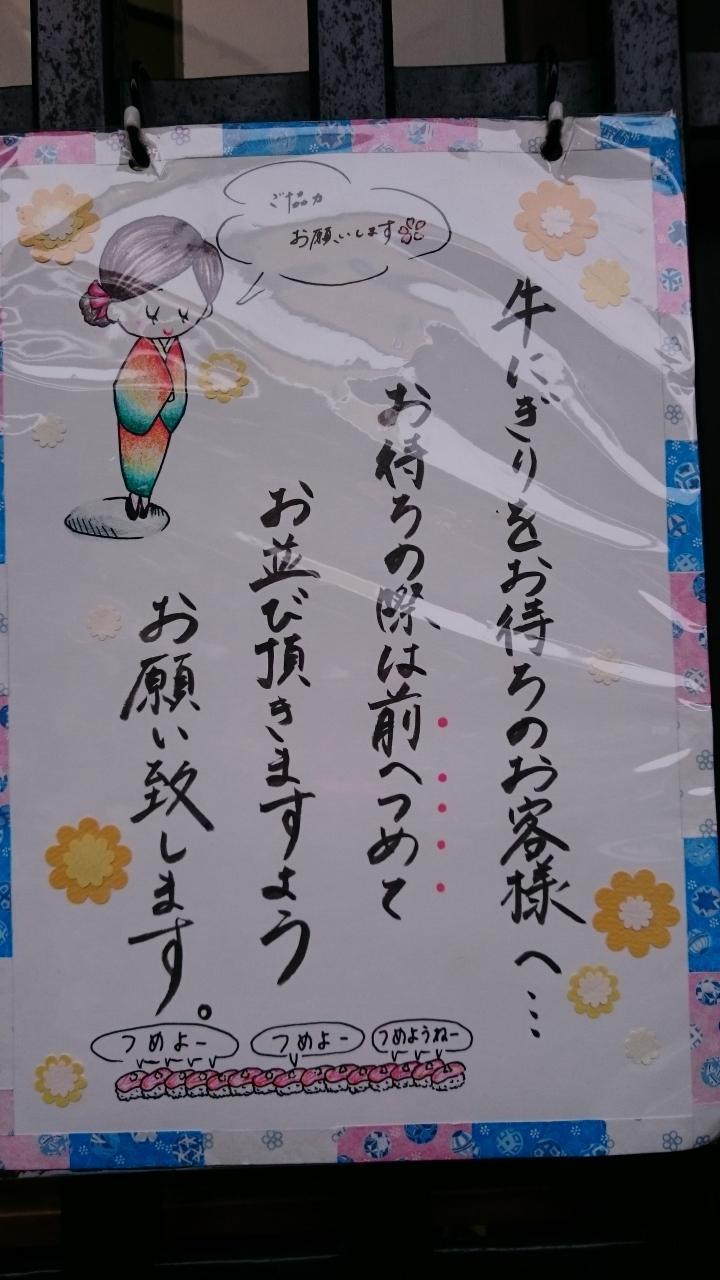 牛にぎりをお待ちのお客様へ…
お待ちの際は前へつめて
お並び頂きますよう
お願い致します。
ご協力
お願いします
つめよー
つめよー
つめようねー